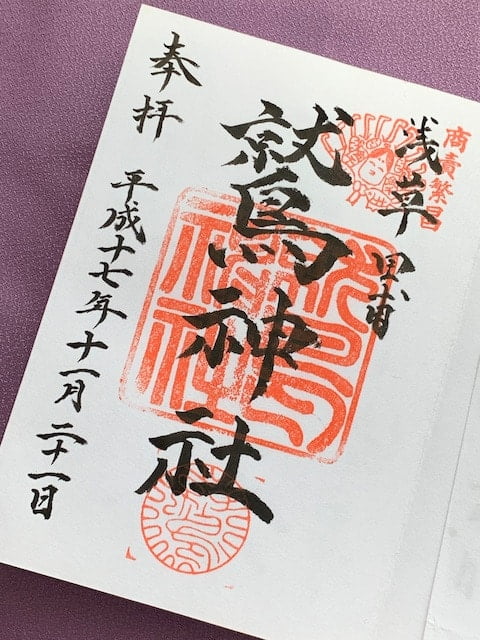 商賣繁昌
浅草 田甫
鷲神社
奉拝
平成十七年十一月二十一日